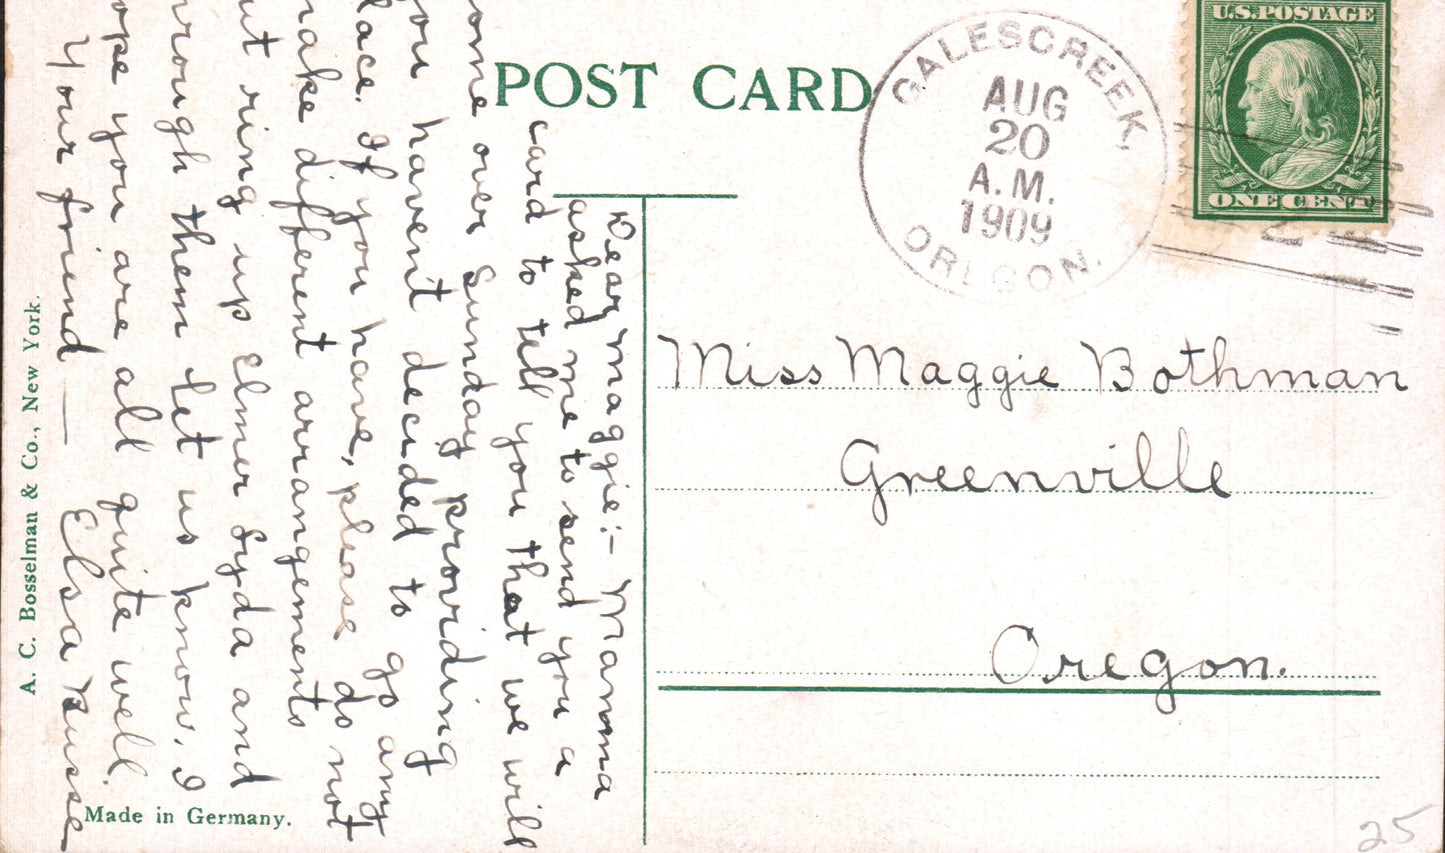 POST CARD
GALESCREEK,
AUG
20
A.M.
1909
OREGON.
U.S. POSTAGE
ONE CENT
2
Dear Maggie:- Mamma
asked me to send you a
card to tell you that we will
ome over Sunday providing
you haven't decided to go any
lace. If you have, please do not
make different arrangements
ut ring up Elmer Lyda and
rough them let us know. I
ope you are all quite well.
Your friend — Elsa Busse
Miss Maggie Bothman
Greenville
Oregon.
A. C. Bosselman & Co., New York.
Made in Germany.
25